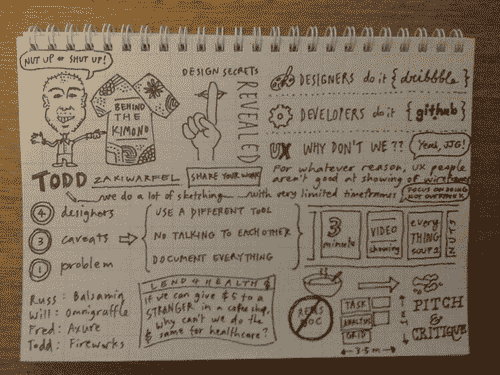 NUT UP or SHUT UP!
BEHIND
THE
KIMONO
DESIGN SECRETS
REVEALED
DESIGNERS do it {dribbble}
DEVELOPERS do it {github}
UX WHY DON'T WE??
Yeah, JJG!
For whatever reason, UX people
aren't good at showing of wireframes
TODD ZAKI WARFEL
SHARE YOUR WORK
we do a lot of sketching with very limited timeframes
FOCUS ON DOING
NOT OVERTHINK
4 designers
3 caveats
1 problem
USE A DIFFERENT TOOL
NO TALKING TO EACH OTHER
DOCUMENT EVERYTHING
3
minute
VIDEO
showing
every
THING
source
NUTS
Russ: Balsamiq
Will: Omnigraffle
Fred: Axure
Todd: Fireworks
LEND 4 HEALTH
If we can give $5 to a
STRANGER in a coffee shop,
why can't we do the
same for healthcare?
REQS
DOC
TASK
ANALYSIS
GRID
3-5m
PITCH
&
CRITIQUE